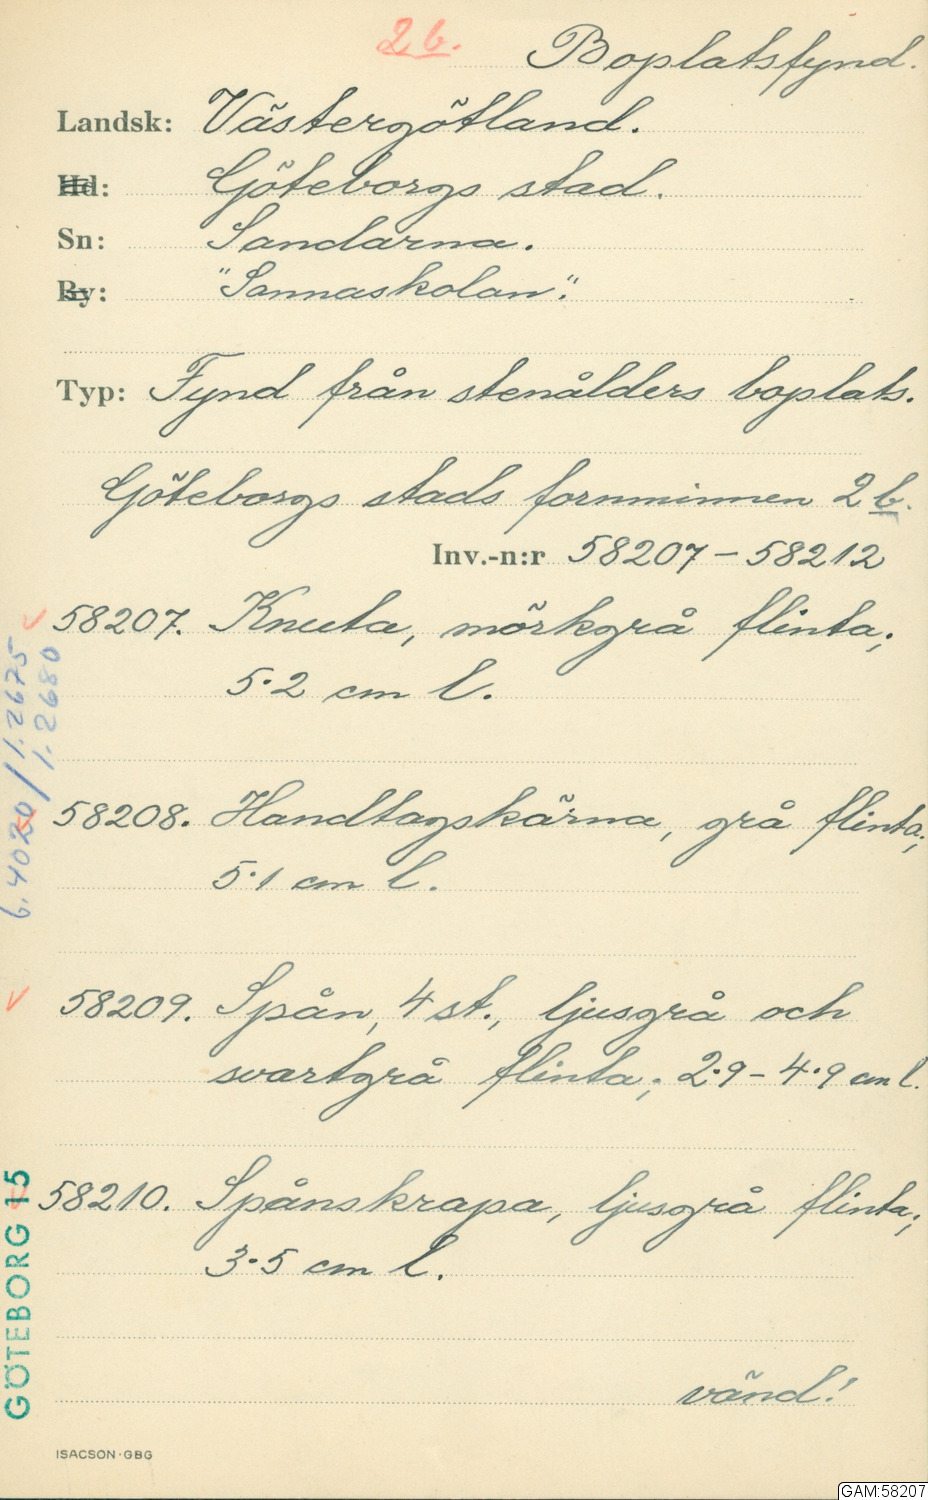 2 b.
Boplatsfynd.
Landsk: Västergötland.
Hd: Göteborgs stad.
Sn: Sandarna.
By: "Sannaskolan".
Typ: Fynd från stenålders boplats.
Göteborgs stads fornminnen 2 b.
Inv.-n:r 58207 – 58212
58207. Knuta, mörkgrå flinta;
5·2 cm l.
58208. Handtagskärna, grå flinta;
5·1 cm l.
58209. Spån, 4 st., ljusgrå och
svartgrå flinta; 2·9 – 4·9 cm l.
58210. Spånskrapa, ljusgrå flinta;
3·5 cm l.
vänd!
6.4020/1.2675
1.2680
GÖTEBORG 15
ISACSON·GBG
GAM:58207